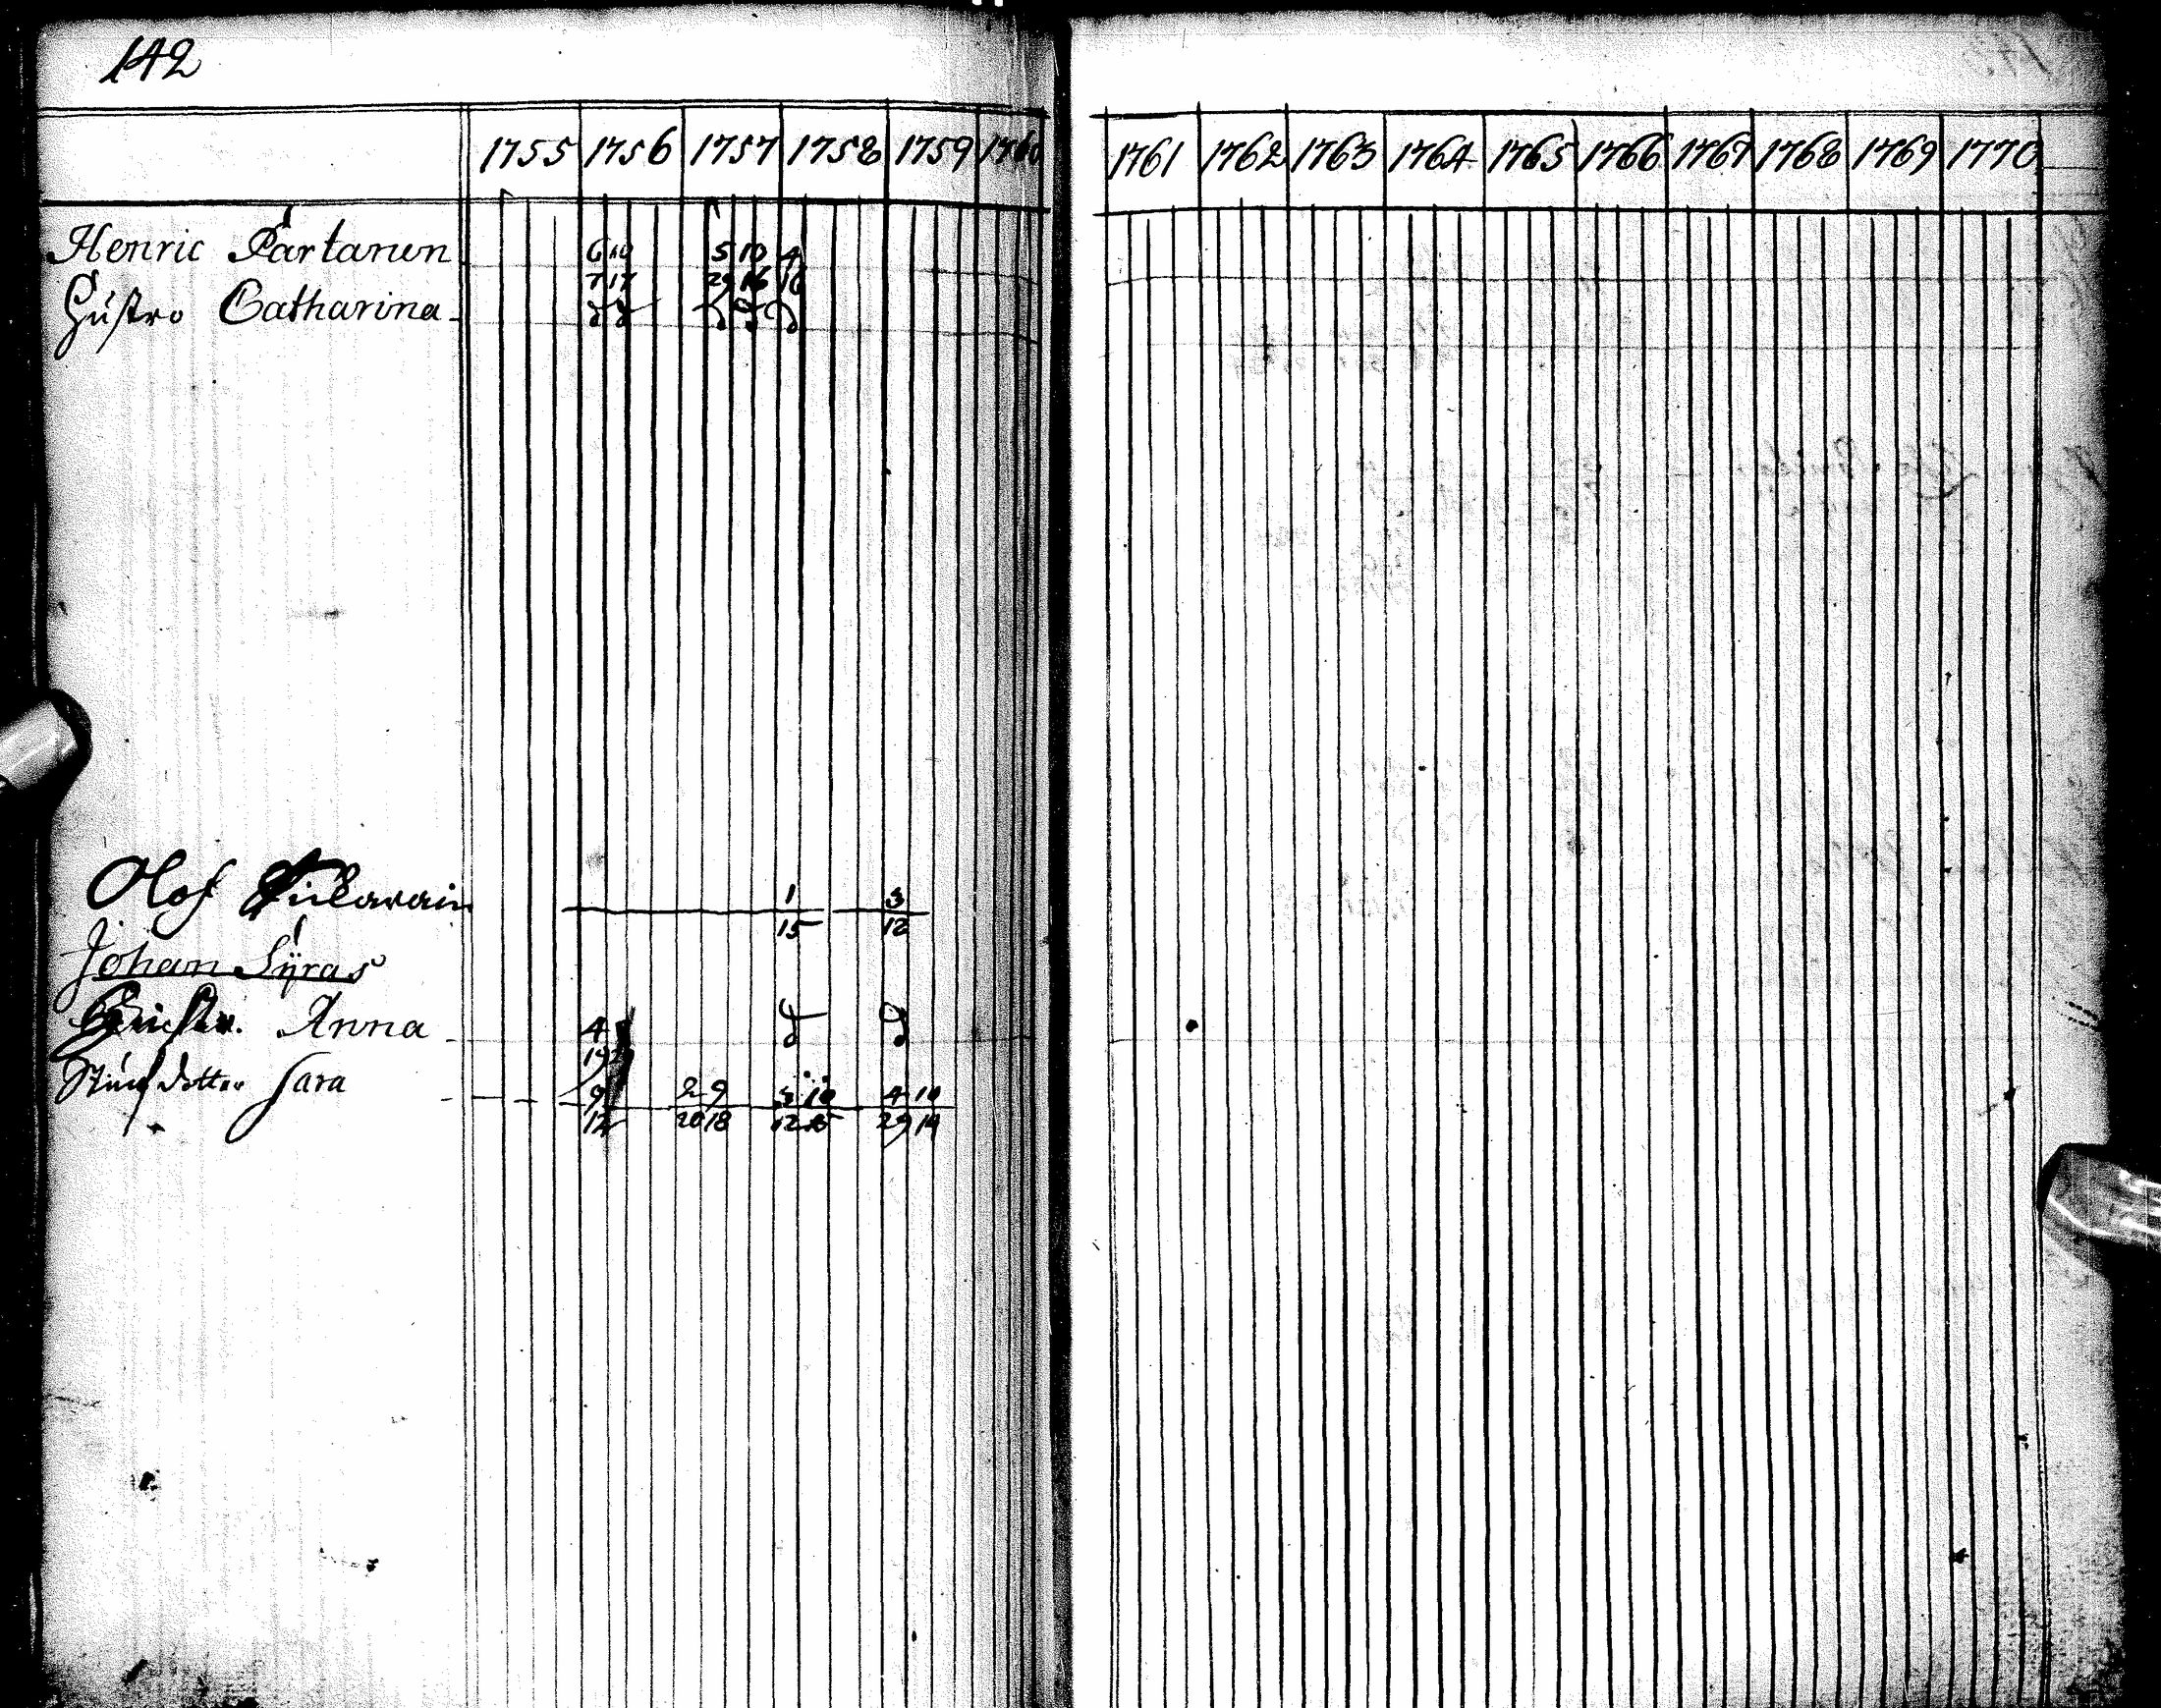 142
1755 1756 1757 1758 1759 1760 1761 1762 1763 1764 1765 1766 1767 1768 1769 1770
Henric Partanen 6 10 5 10 4
7 17 29 16 16
Hustro Catharina d d d d d
Olof 1 3
15 12
Johan Syras
Anna 4 d d
19
dotter Sara 9 2 9 3 10 4 10
12 20 18 12 29 14